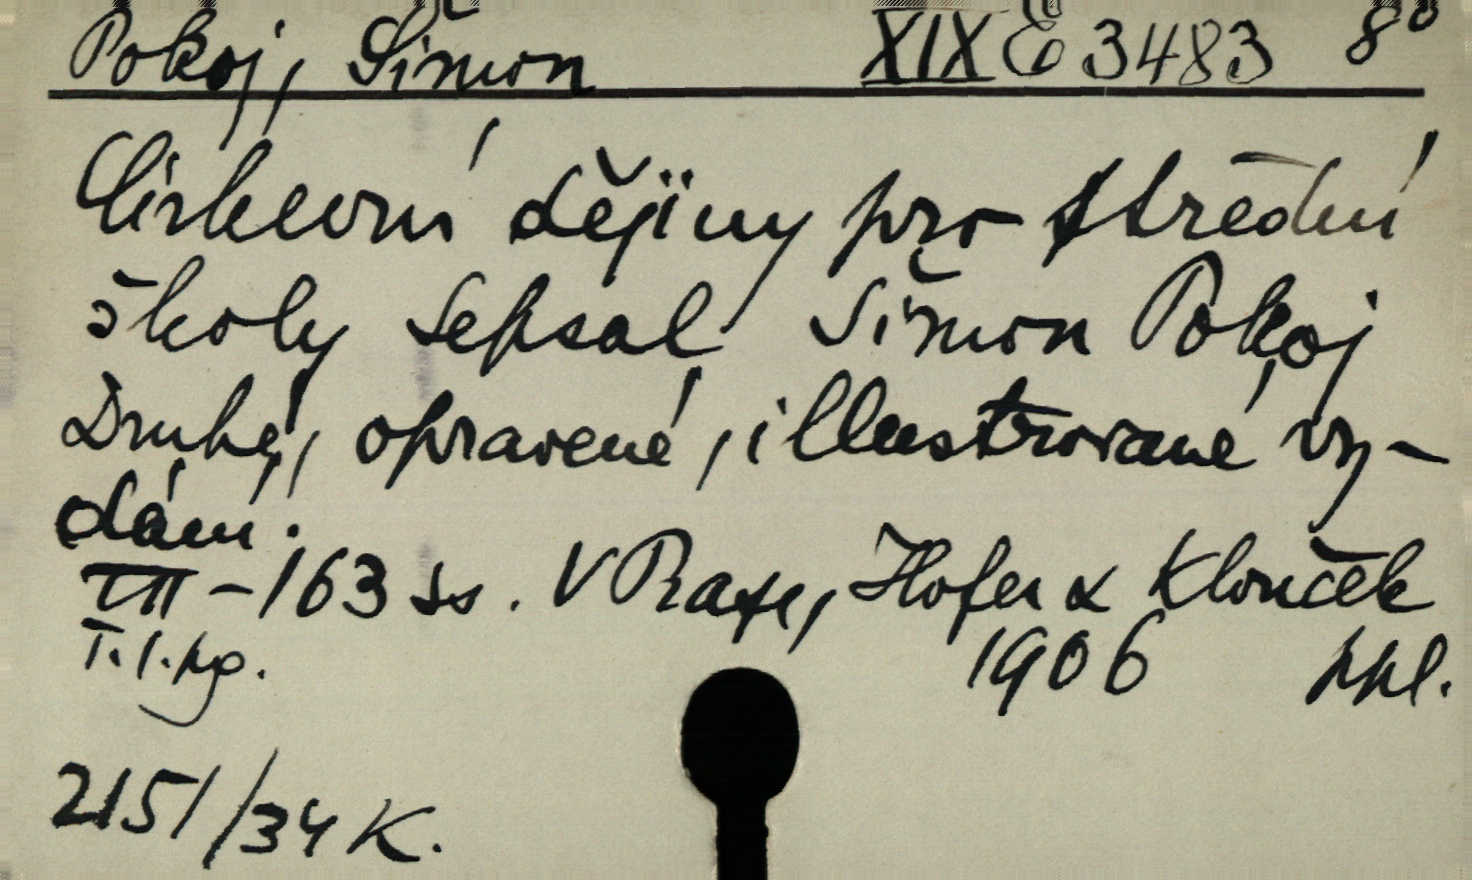 Pokoj, Šimon XIX E 3483 8°
Církevní dějiny pro střední
školy sepsal Šimon Pokoj
Druhé, opravené, illustrované vy-
dání.
III - 163 ss. V Praze, Hofer & Klouček
T. l. kg. 1906 ppl.
2151/34 K.